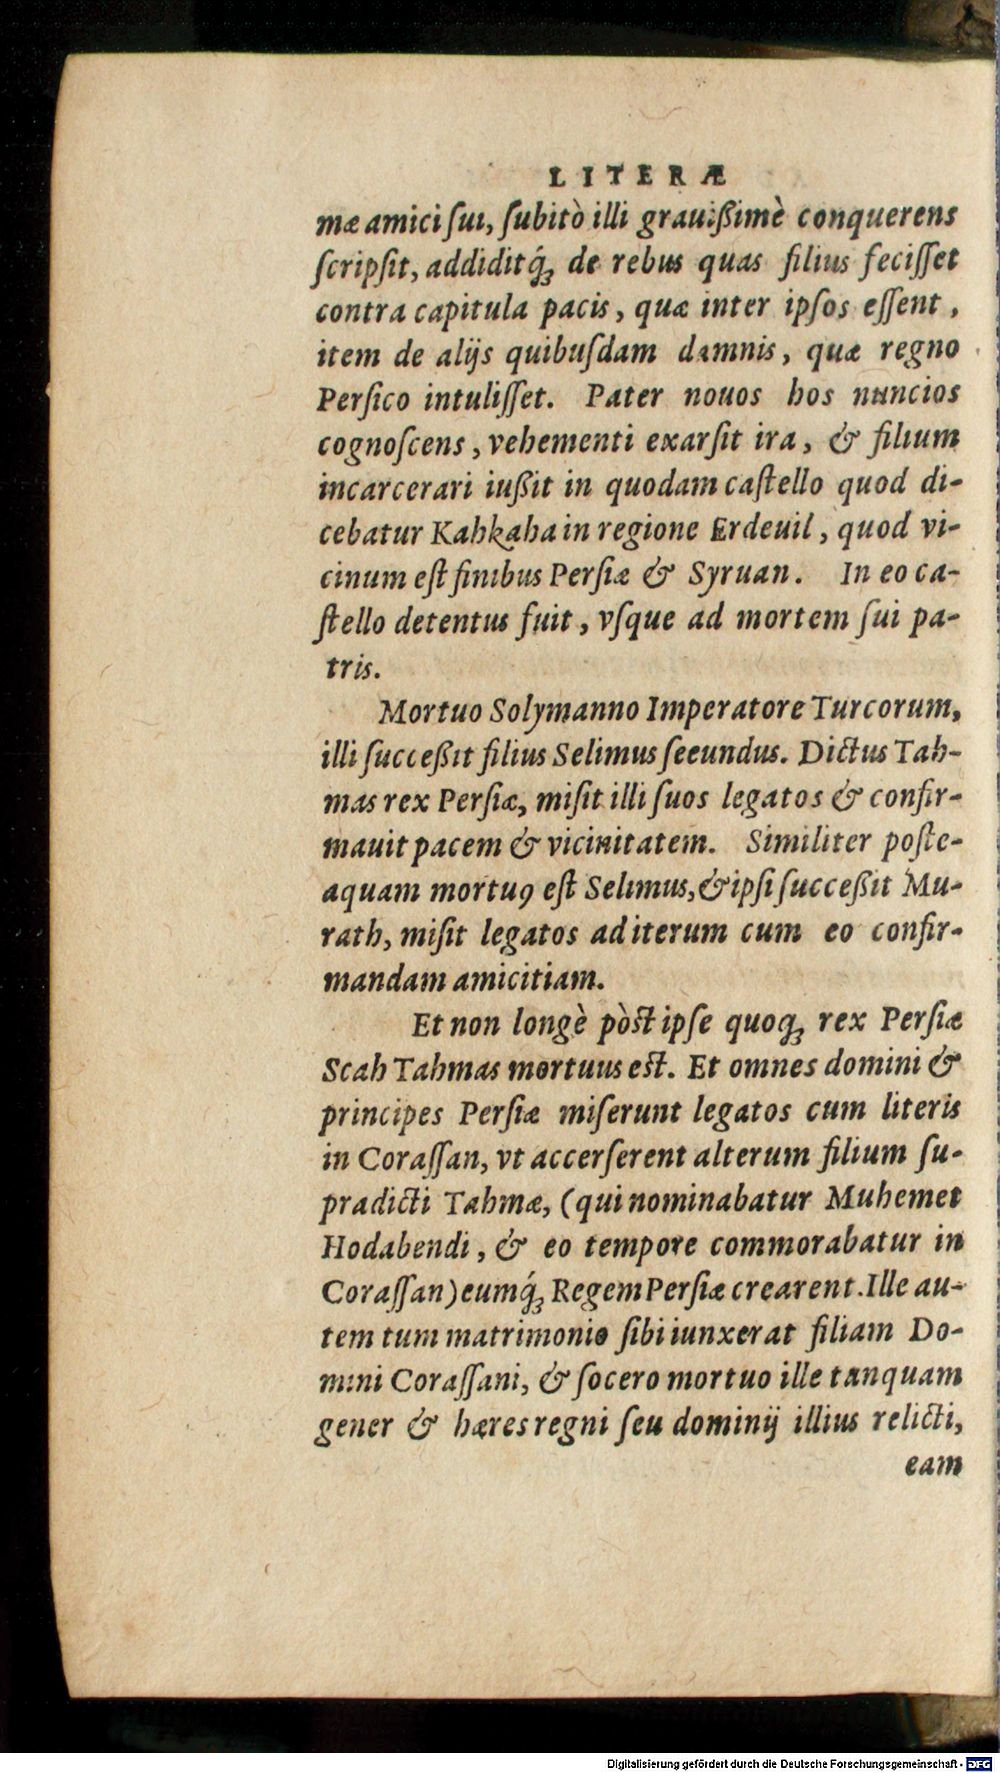 LITERÆ
mæ amici ſui, ſubitò illi grauißimè conquerens
ſcripſit, addiditq́ꝫ de rebus quas filius feciſſet
contra capitula pacis, quæ inter ipſos eſſent,
item de alijs quibuſdam damnis, quæ regno
Perſico intuliſſet. Pater nouos hos nuncios
cognoſcens, vehementi exarſit ira, & filium
incarcerari iußit in quodam caſtello quod di-
cebatur Kahkaha in regione Erdeuil, quod vi-
cinum eſt finibus Perſiæ & Syruan. In eo ca-
ſtello detentus fuit, vſque ad mortem ſui pa-
tris.
Mortuo Solymanno Imperatore Turcorum,
illi ſucceßit filius Selimus ſeeundus. Dictus Tah-
mas rex Perſiæ, miſit illi ſuos legatos & confir-
mauit pacem & vicinitatem. Similiter poſte-
aquam mortuꝰ eſt Selimus, & ipſi ſucceßit Mu-
rath, miſit legatos ad iterum cum eo confir-
mandam amicitiam.
Et non longè pòst ipſe quoqꝫ rex Perſiæ
Scah Tahmas mortuus est. Et omnes domini &
principes Perſiæ miſerunt legatos cum literis
in Coraſſan, vt accerſerent alterum filium ſu-
pradicti Tahmæ, (qui nominabatur Muhemet
Hodabendi, & eo tempore commorabatur in
Coraſſan) eumq́ꝫ Regem Perſiæ crearent. Ille au-
tem tum matrimonio ſibi iunxerat filiam Do-
mini Coraſſani, & ſocero mortuo ille tanquam
gener & hæres regni ſeu dominij illius relicti,
eam
Digitalisierung gefördert durch die Deutsche Forschungsgemeinschaft - DFG